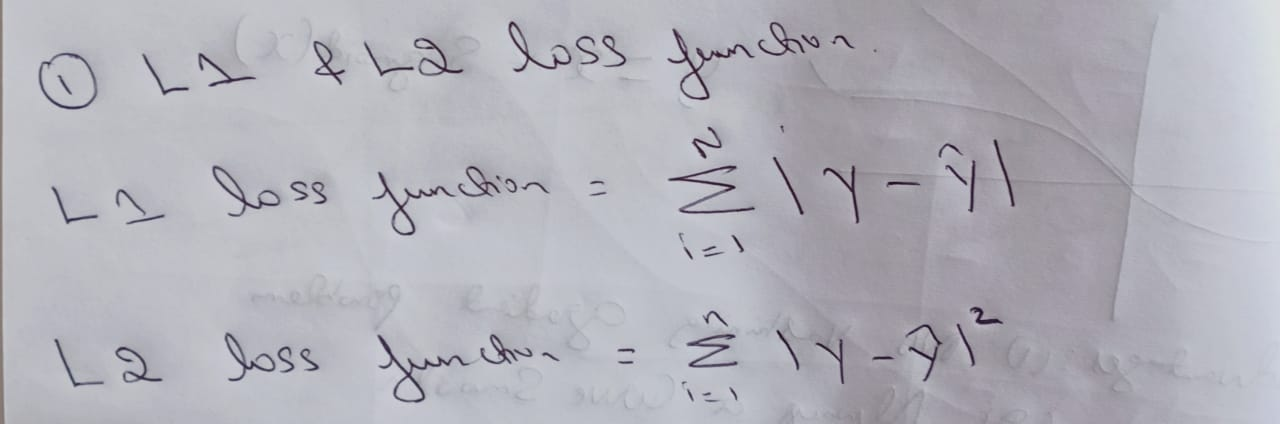 ① L1 & L2 loss function.
L1 loss function = \sum_{i=1}^{N} |y - ŷ|
L2 loss function = \sum_{i=1}^{n} |y - ŷ|²